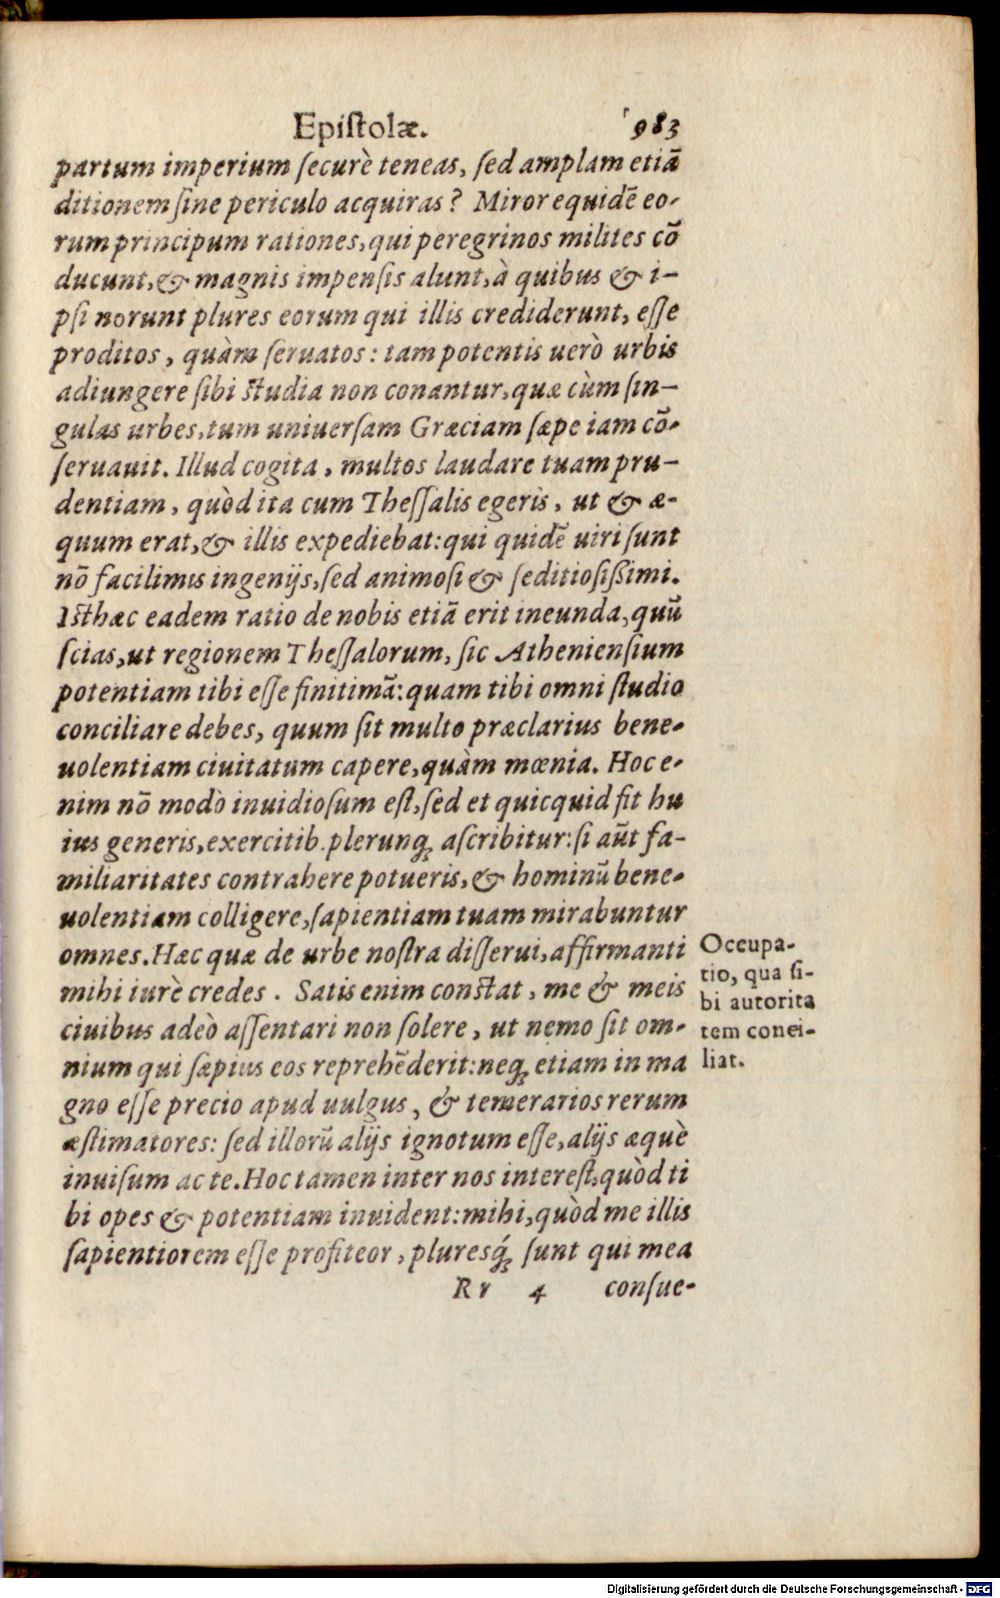 Epistolæ. 983
partum imperium ſecurè teneas, ſed amplam etiā
ditionem ſine periculo acquiras? Miror equidē eo-
rum principum rationes, qui peregrinos milites cō
ducunt, & magnis impenſis alunt, à quibus & i-
pſi norunt plures eorum qui illis crediderunt, eſſe
proditos, quàm ſeruatos: tam potentis uerò urbis
adiungere ſibi ſtudia non conantur, quæ cùm ſin-
gulas urbes, tum uniuerſam Græciam ſæpe iam cō-
ſeruauit. Illud cogita, multos laudare tuam pru-
dentiam, quòd ita cum Theſſalis egeris, ut & æ-
quum erat, & illis expediebat: qui quidē uiri ſunt
nō facilimis ingenijs, ſed animoſi & ſeditioſißimi.
Iſthæc eadem ratio de nobis etiā erit ineunda, quū
ſcias, ut regionem Theſſalorum, ſic Athenienſium
potentiam tibi eſſe finitimā: quam tibi omni ſtudio
conciliare debes, quum ſit multo præclarius bene-
uolentiam ciuitatum capere, quàm mœnia. Hoc e-
nim nō modò inuidioſum eſt, ſed et quicquid fit hu
ius generis, exercitib. plerunq; aſcribitur: ſi aūt fa-
miliaritates contrahere potueris, & hominū bene-
uolentiam colligere, ſapientiam tuam mirabuntur
omnes. Hæc quæ de urbe noſtra diſſerui, affirmanti
mihi iurè credes. Satis enim conſtat, me & meis
ciuibus adeò aſſentari non ſolere, ut nemo ſit om-
nium qui ſæpius eos reprehēderit: neq; etiam in ma
gno eſſe precio apud uulgus, & temerarios rerum
æſtimatores: ſed illorū alijs ignotum eſſe, alijs æquè
inuiſum ac te. Hoc tamen inter nos intereſt, quòd ti
bi opes & potentiam inuident: mihi, quòd me illis
ſapientiorem eſſe profiteor, pluresq́; ſunt qui mea
Rr 4 conſue-
Occupa-
tio, qua ſi-
bi autorita
tem conci-
liat.
Digitalisierung gefördert durch die Deutsche Forschungsgemeinschaft - DFG